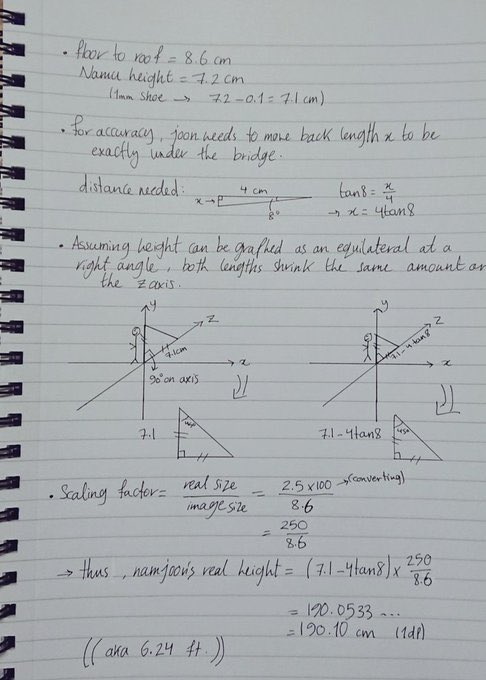 • floor to roof = 8.6 cm
Namu height = 7.2 cm
(1mm shoe → 7.2 - 0.1 = 7.1 cm)
• for accuracy, joon needs to move back length x to be
exactly under the bridge.
distance needed:
x→
4 cm
8°
tan8 = x/4
→ x = 4tan8
• Assuming height can be grafhed as an equilateral at a
right angle, both lengths shrink the same amount on
the z axis.
y
z
x
7.1cm
90° on axis
7.1
45°
y
z
x
7.1-4tan8
7.1-4tan8
45°
• Scaling factor = real size/image size = 2.5 x 100/8.6 → (converting)
= 250/8.6
→ thus, namjoon's real height = (7.1-4tan8) x 250/8.6
= 190.0533 ...
= 190.10 cm (1dp)
((aka 6.24 ft.))